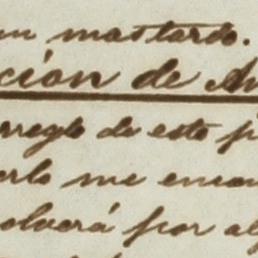 un mastardo.
ción de An
rreglo de este p
erlo me encon
olverá por al